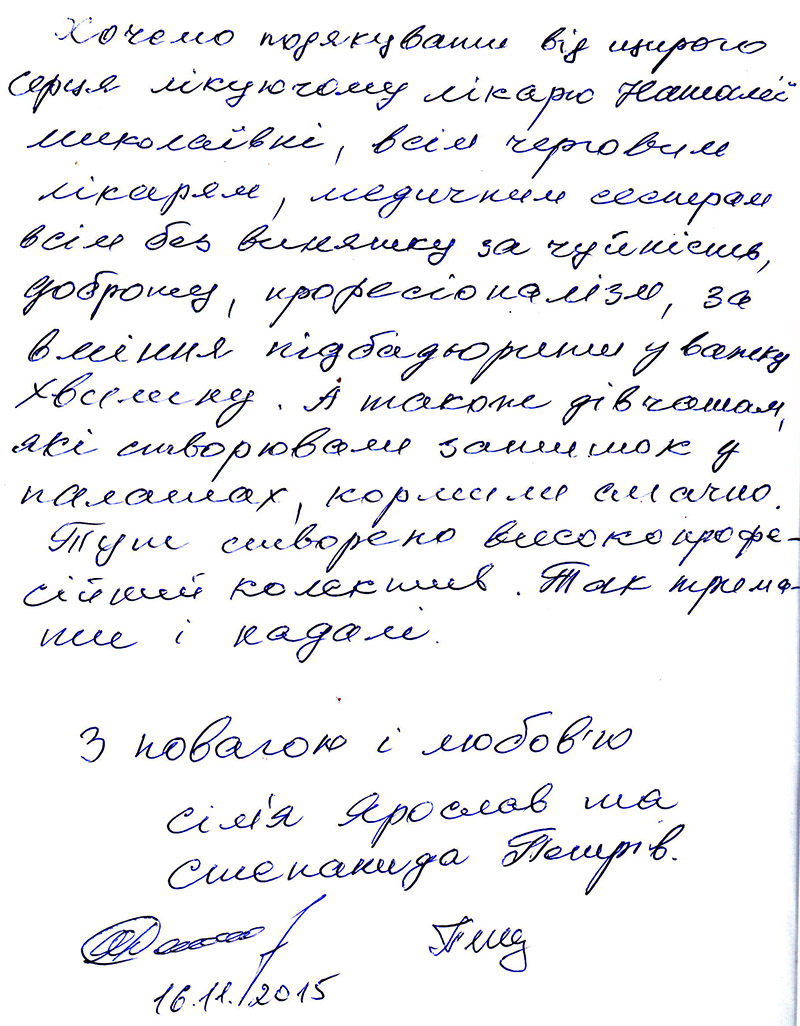 Хочемо подякувати від щирого
серця лікуючому лікарю Наталії
Миколаївні, всім черговим
лікарям, медичним сестрам
всім без винятку за чуйність,
доброту, професіоналізм, за
вміння підбадьорити у важку
хвилину. А також дівчатам,
які створювали затишок у
палатах, кормили смачно.
Тут створено високопрофе-
сійний колектив. Так трима-
ти і надалі.
З повагою і любов'ю
сім'я Ярослав та
Степанида Петрів.
16.11.2015